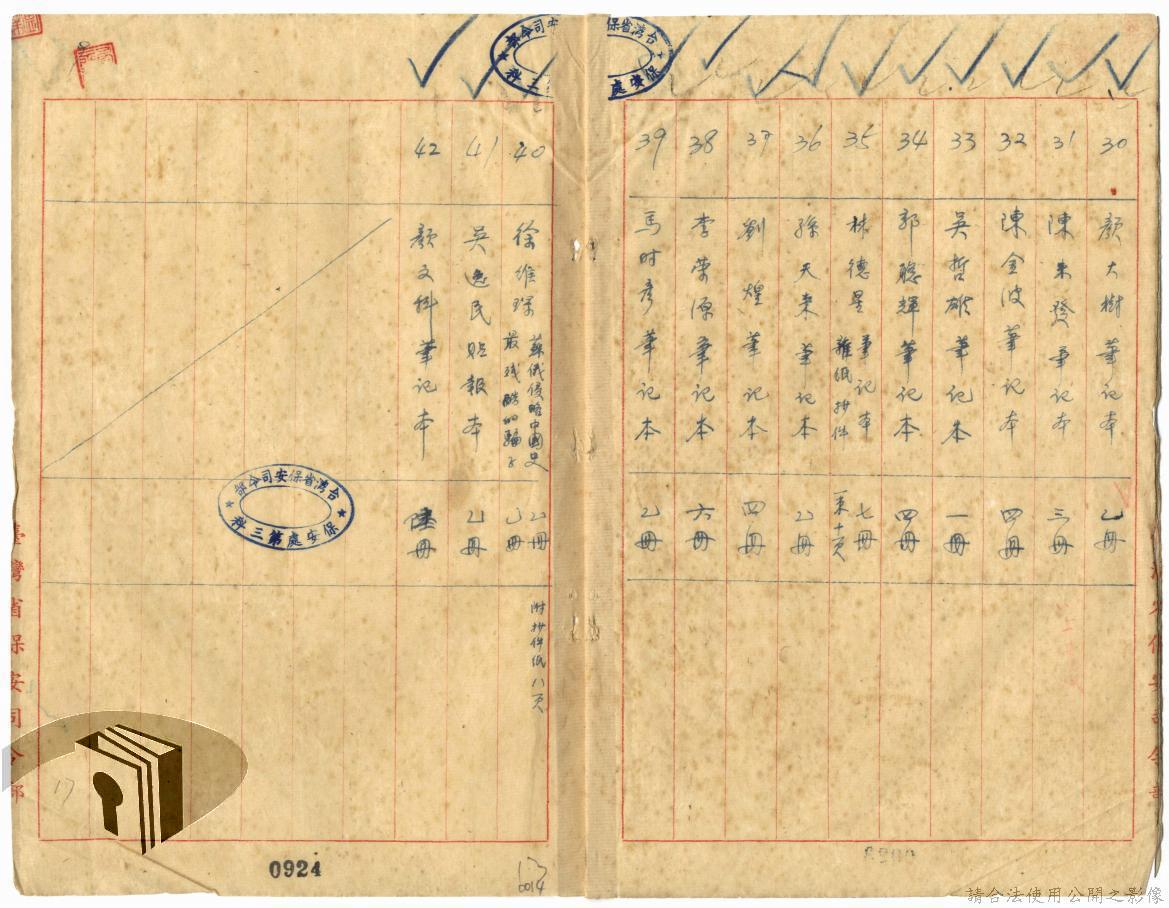 30 顏大樹筆記本 乙冊
31 陳來發筆記本 三冊
32 陳金波筆記本 四冊
33 吳哲雄筆記本 一冊
34 郭聰輝筆記本 四冊
35 林德星筆記本 七冊
雜紙抄件 一束十頁
36 孫天來筆記本 乙冊
37 劉煌筆記本 四冊
38 李榮源筆記本 六冊
39 馬时彥筆記本 乙冊
台湾省保安司令部
保安處第三科
40 徐維琛 蘇俄侵略中國史 乙冊 附抄件紙八頁
最残酷的騙子 乙冊
41 吳逸民貼報本 乙冊
42 顏文科筆記本 陸冊
台湾省保安司令部
保安處第三科
臺灣省保安司令部
17
0924
17
0014
請合法使用公開之影像